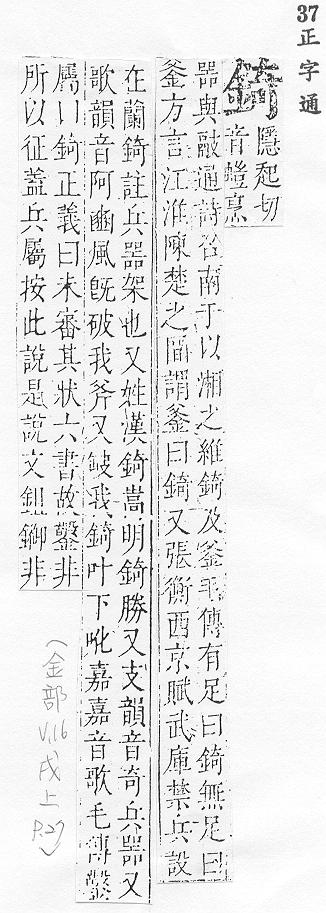 37正字通
錡
隱起切
音螘烹
器與敲通詩召南于以湘之維錡及釜毛傳有足曰錡無足曰
釜方言江淮陳楚之間謂釜曰錡又張衡西京賦武庫禁兵設
在蘭錡註兵器架也又姓漢錡嵩明錡勝又支韻音奇兵器又
歌韻音阿豳風旣破我斧又缺我錡叶下吪嘉嘉音歌毛傳鑿
屬曰錡正義曰未審其狀六書故鑿非
所以征蓋兵屬按此說是說文鉏鋤非
(金部
V.16
戌上
P.27)